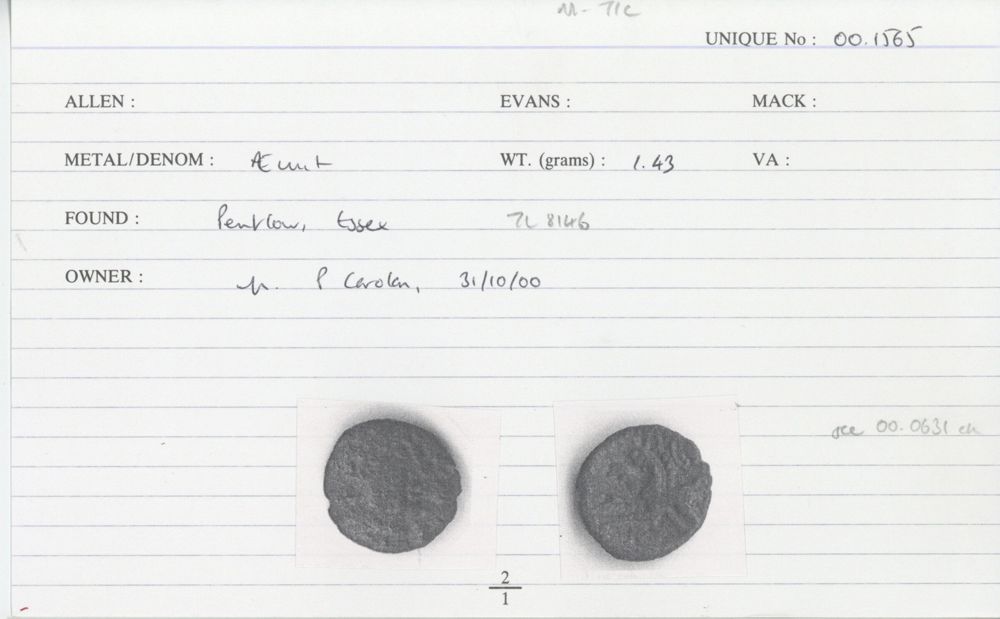 UNIQUE No : 00.1565
ALLEN : EVANS : MACK :
METAL/DENOM : Æ unit WT. (grams) : 1.43 VA :
FOUND : Pentlow, Essex TL 8146
OWNER : P Carolan, 31/10/00
see 00.0631
2
1